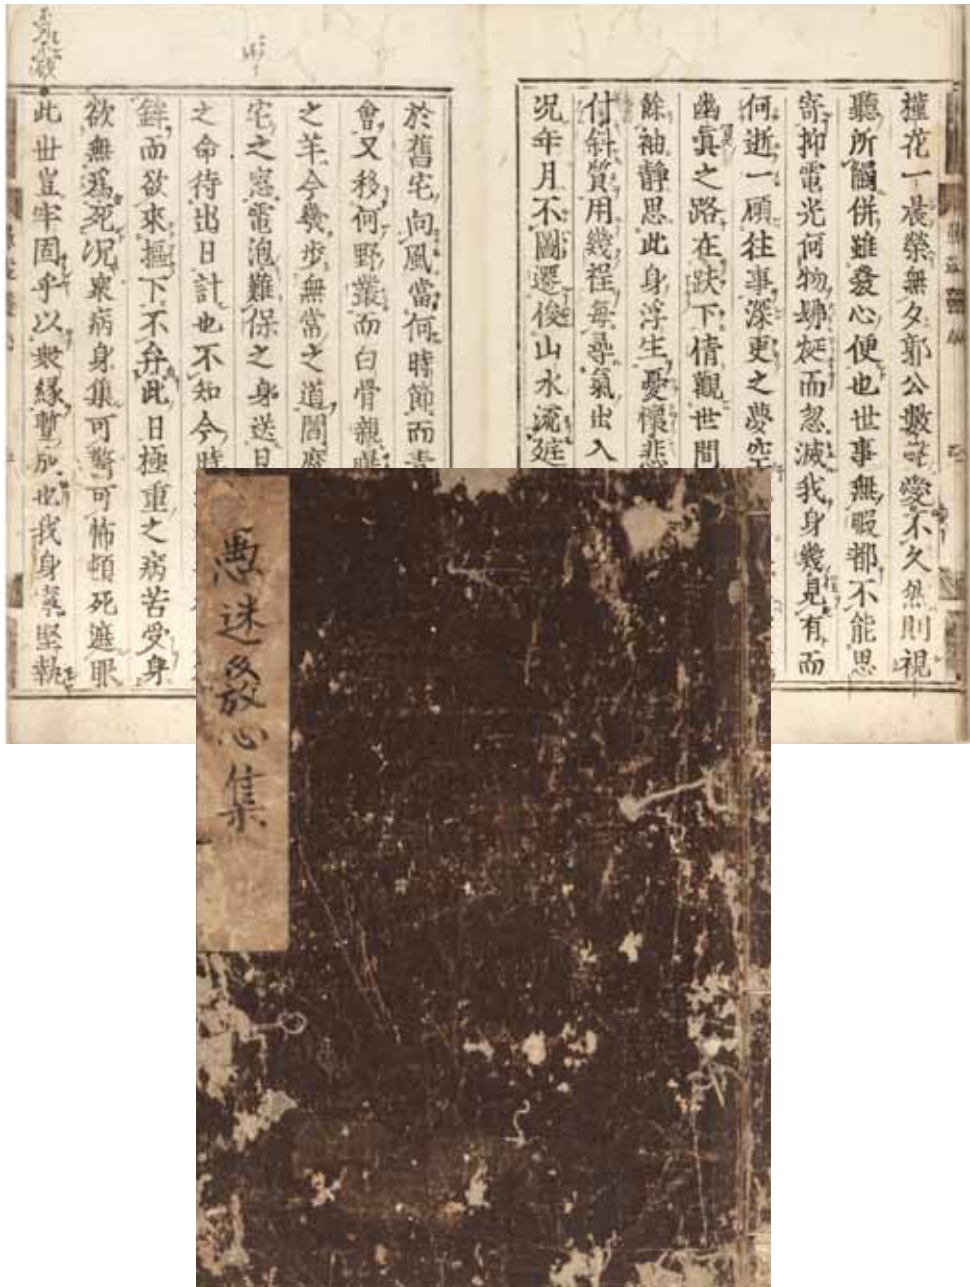 槿花一晨榮無夕郭公數聲愛不久然則視
聽所觸併雖發心便也世事無暇都不能思
寄抑電光何物歘挺而忽滅我身幾見有而
何逝一顧往事深更之夢空
幽冥之路在趺下倩觀世間
餘袖靜思此身浮生憂懷悲
付斜質用幾程每尋氣出入
況年月不圖遷俊山水流
於舊宅向風當何時節而
會又移何野叢而白骨親曝
之羊今幾步無常之道閻
宅之窓電泡難保之身送日
之命待出日計也不知今時
鉾而欲來摳下不弁此日極重之病苦受身
欲無為死況衆病身集可驚可怖頓死遮眼
此世豈牢固乎以衆緣暫成也我身豈堅執
愚迷發心集